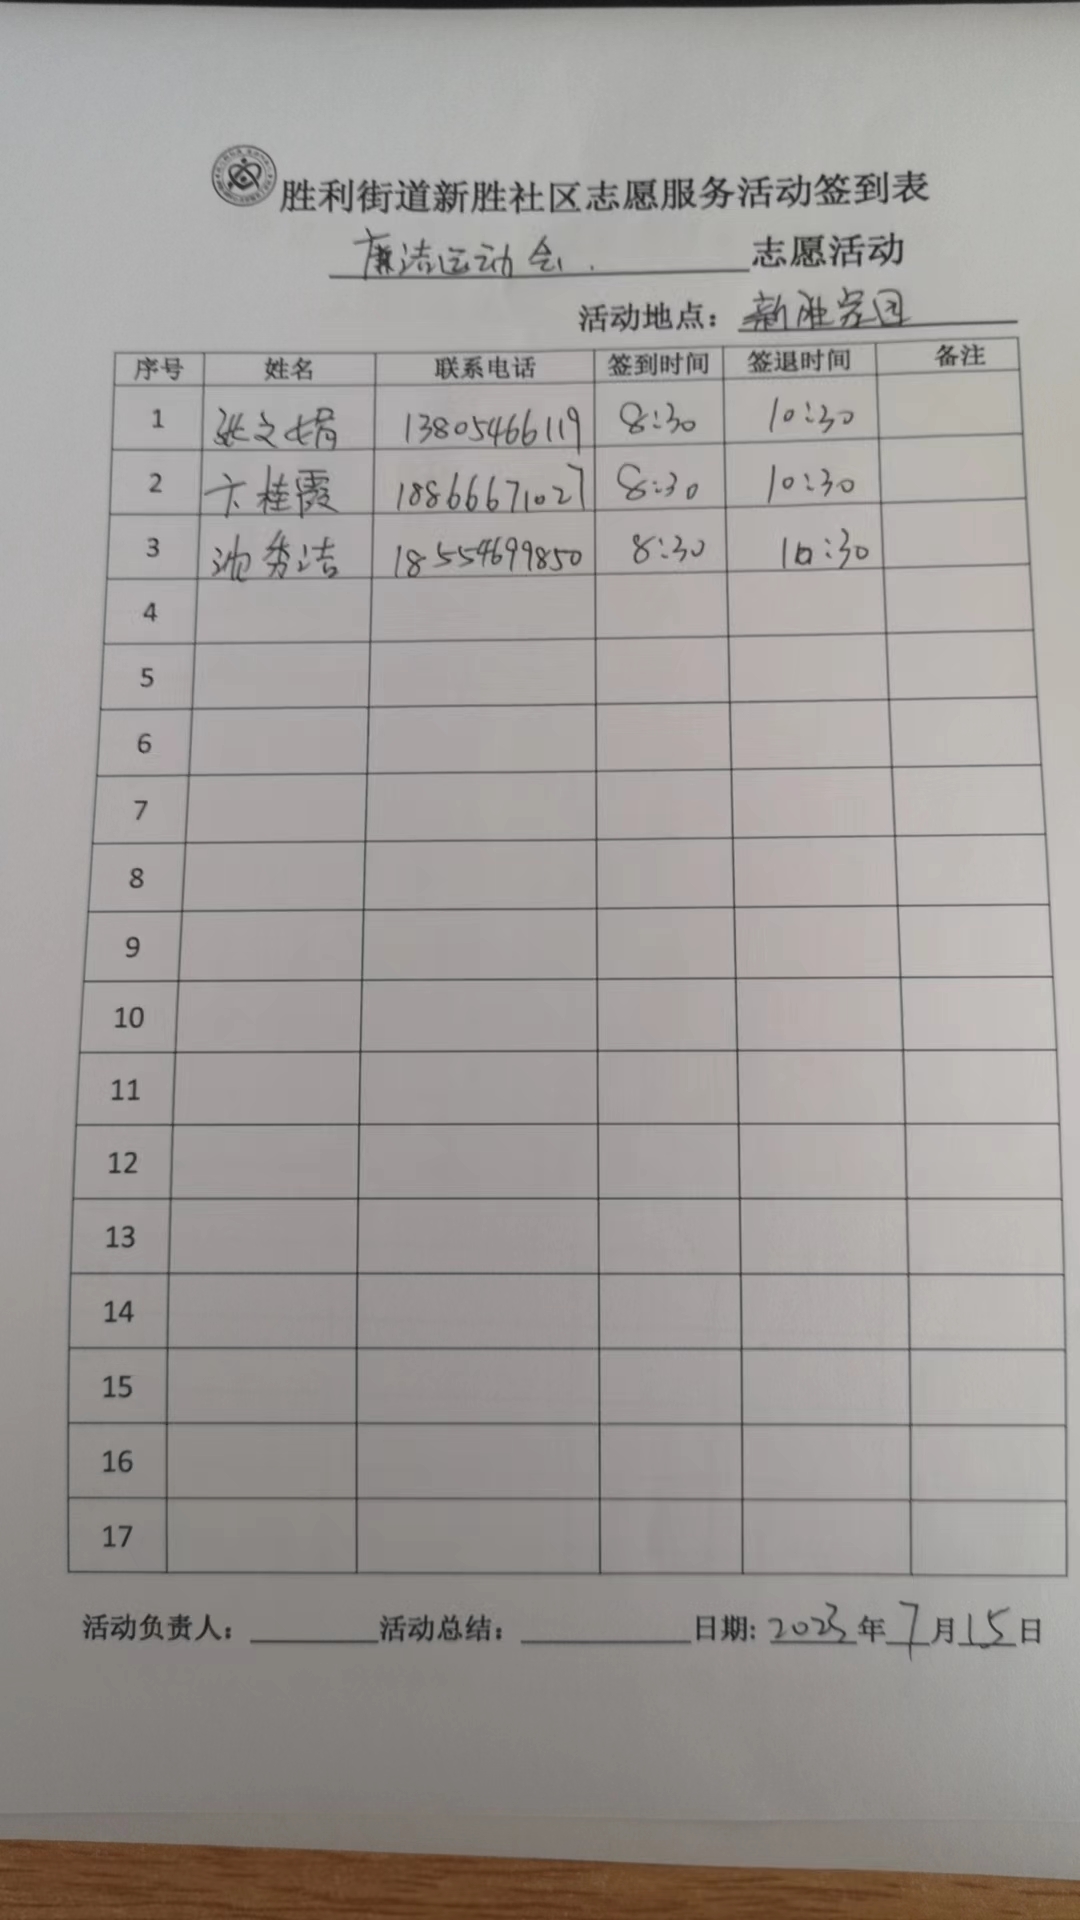 胜利街道新胜社区志愿服务活动签到表
廉洁运动会. 志愿活动
活动地点: 新胜家园
序号 姓名 联系电话 签到时间 签退时间 备注
1 张文娟 13805466119 8:30 10:30
2 卞桂霞 18866671027 8:30 10:30
3 沈秀洁 18554699850 8:30 10:30
4
5
6
7
8
9
10
11
12
13
14
15
16
17
活动负责人: 活动总结: 日期: 2023年7月15日